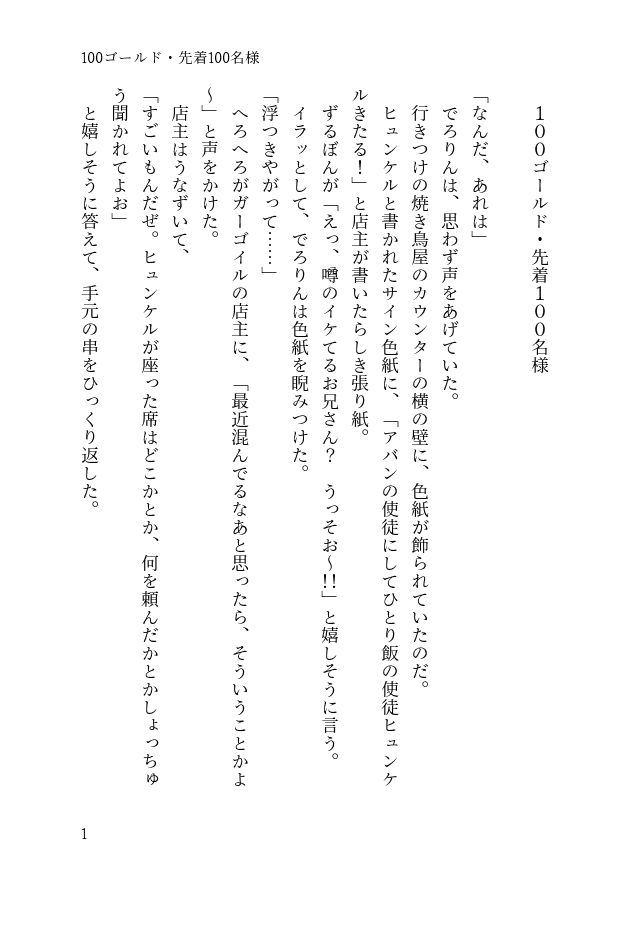 100ゴールド・先着100名様
１００ゴールド・先着１００名様
「なんだ、あれは」
でろりんは、思わず声をあげていた。
行きつけの焼き鳥屋のカウンターの横の壁に、色紙が飾られていたのだ。
ヒュンケルと書かれたサイン色紙に、「アバンの使徒にしてひとり飯の使徒ヒュンケ
ルきたる！」と店主が書いたらしき張り紙。
ずるぼんが「えっ、噂のイケてるお兄さん？　うっそお～!!」と嬉しそうに言う。
イラッとして、でろりんは色紙を睨みつけた。
「浮つきやがって……」
へろへろがガーゴイルの店主に、「最近混んでるなあと思ったら、そういうことかよ
～」と声をかけた。
店主はうなずいて、
「すごいもんだぜ。ヒュンケルが座った席はどこかとか、何を頼んだかとかしょっちゅ
う聞かれてよお」
と嬉しそうに答えて、手元の串をひっくり返した。
1